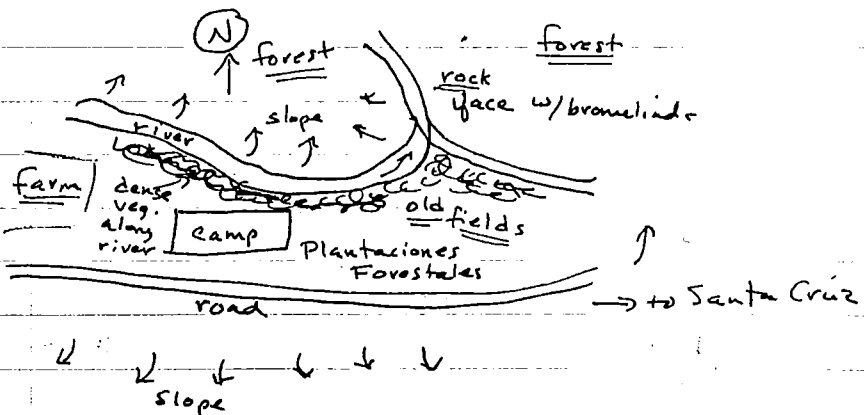 N
forest
forest
rock
face w/bromeliads
slope
river
farm
dense
veg.
along
river
camp
old
fields
Plantaciones
Forestales
road
→ to Santa Crúz
slope